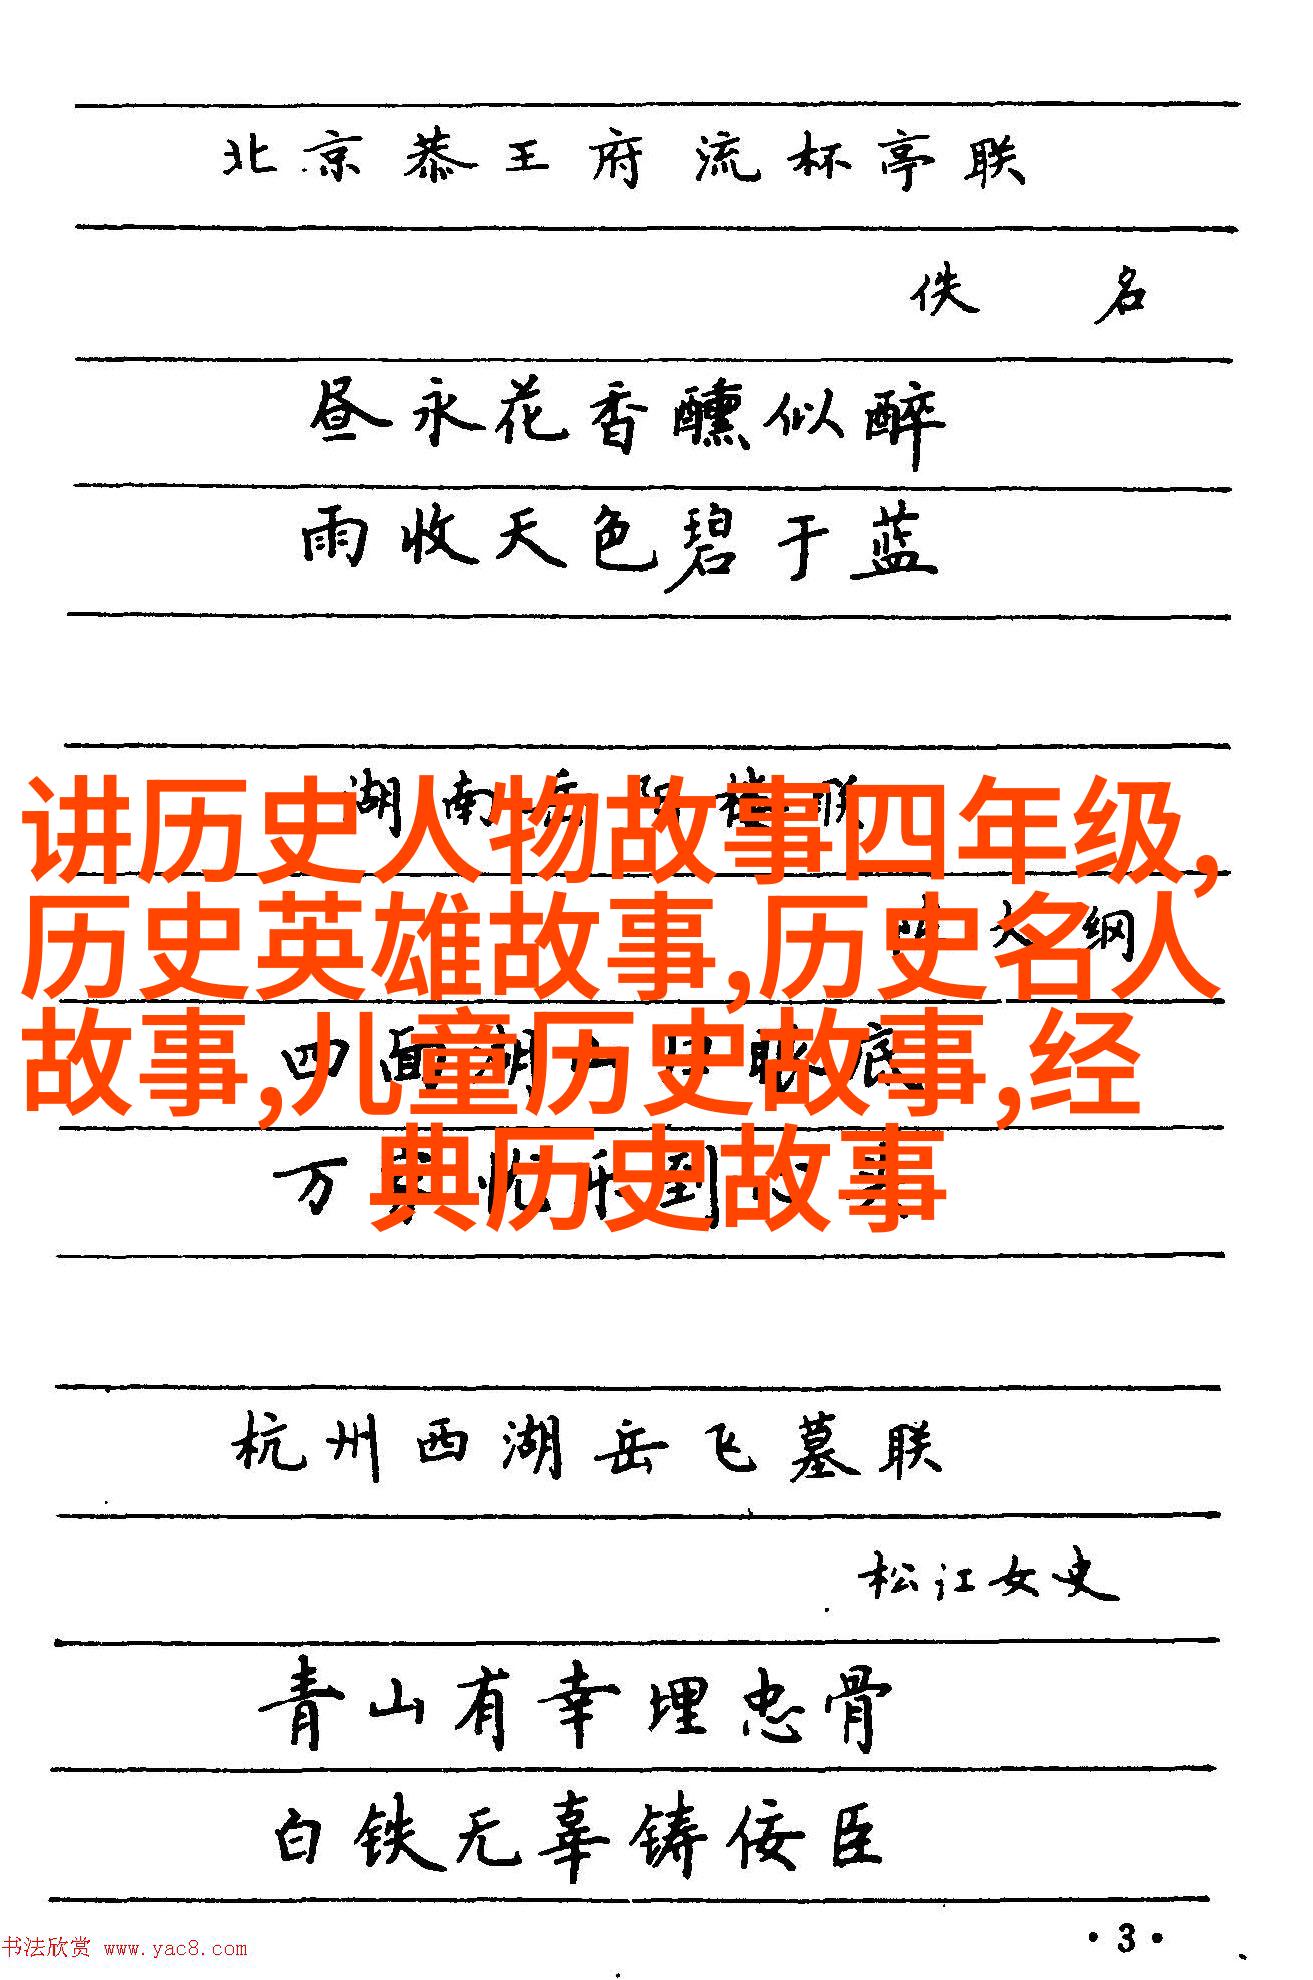 北京恭王府流杯亭联
佚名
昼永花香醺似醉
雨收天色碧于蓝
湖南岳阳楼联
讲历史人物故事四年级,
历史英雄故事,历史名人
大纲
故事,儿童历史故事,经
四面湖山归眼底
典历史故事
万家忧乐到心头
杭州西湖岳飞墓联
松江女史
青山有幸埋忠骨
白铁无辜铸佞臣
·3·
书法欣赏 www.yac8.com